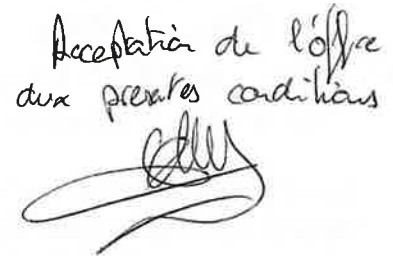 Acceptation de l'offre
aux presentes conditions